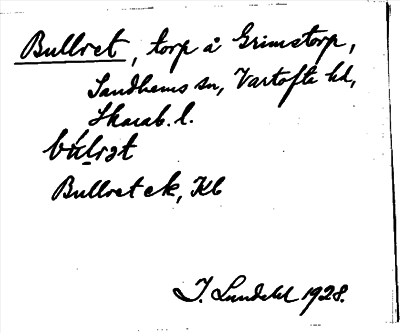 Bullret, torp å Grimstorp,
Sandhems sn, Vartofta hd,
Skarab. l.
búlrət
Bullret ek, Kb
I. Lundahl 1928.